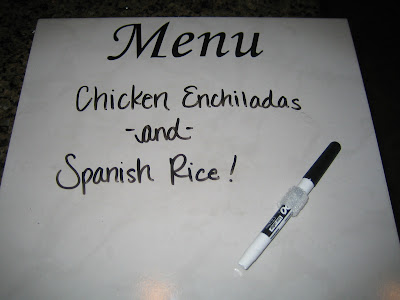 Menu
Chicken Enchiladas
-and-
Spanish Rice!